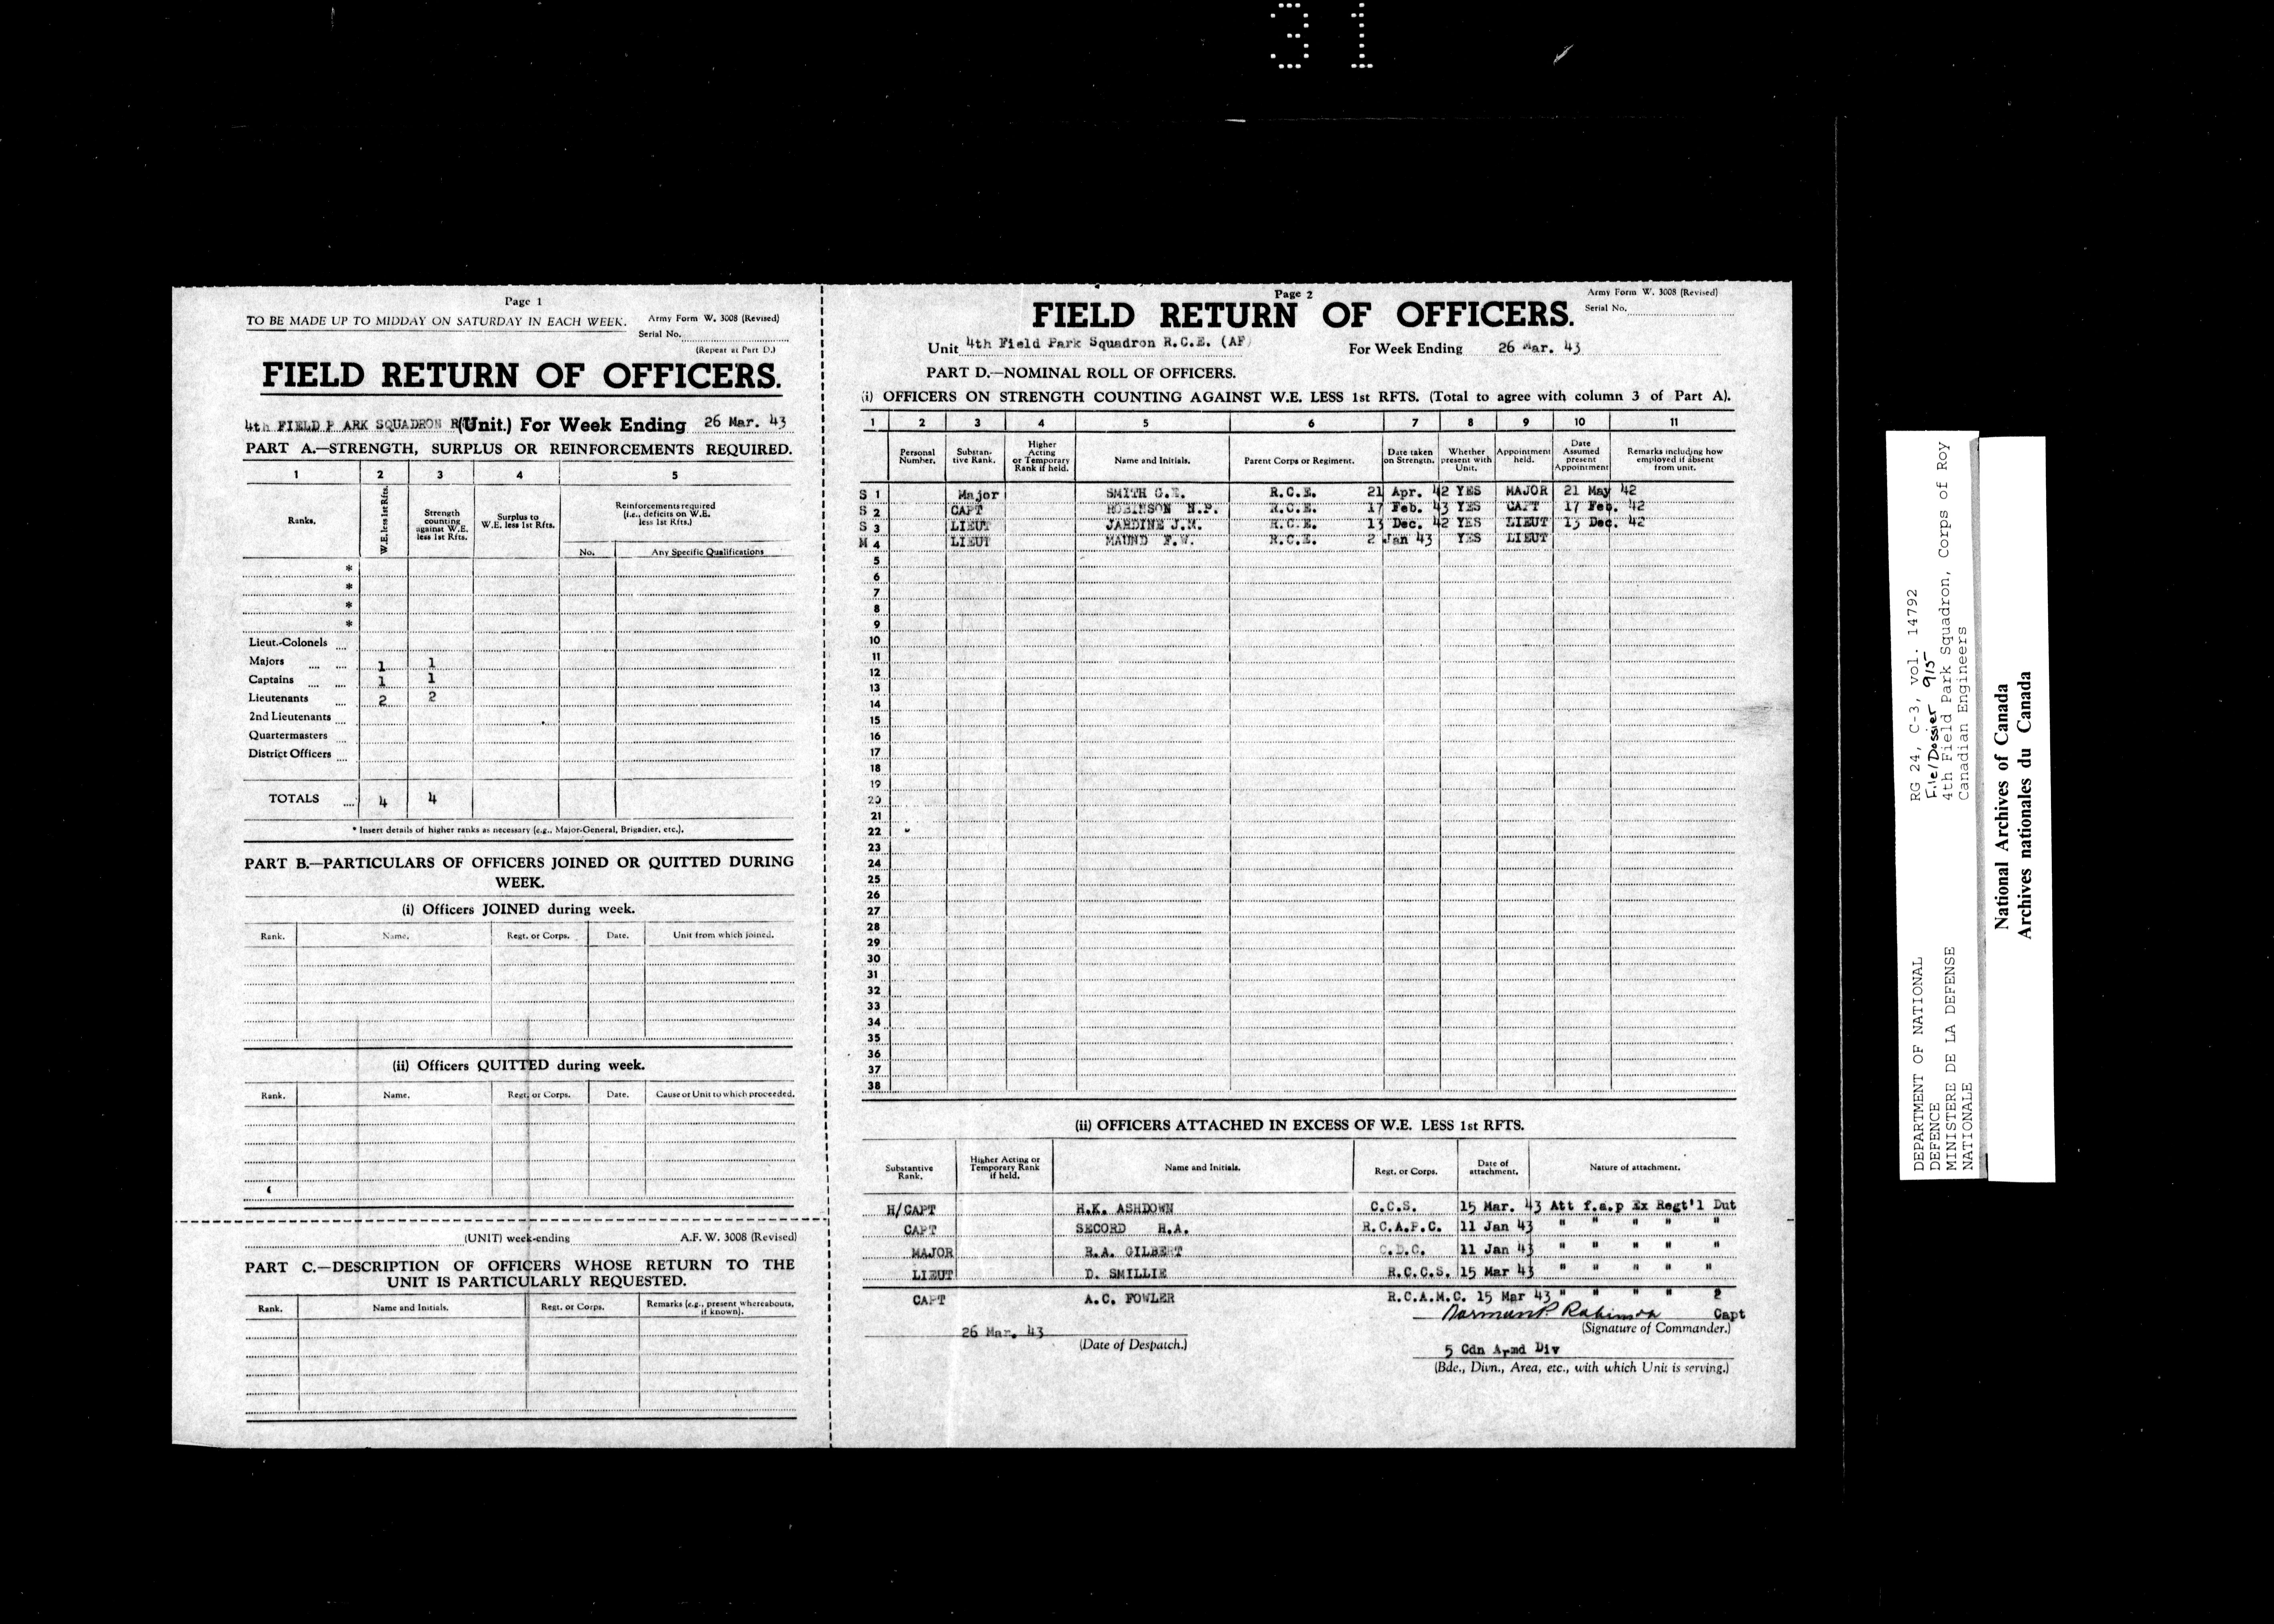 31
Page 1
TO BE MADE UP TO MIDDAY ON SATURDAY IN EACH WEEK.
Army Form W. 3008 (Revised)
Serial No.
(Repeat at Part D.)
FIELD RETURN OF OFFICERS.
4th FIELD P ARK SQUADRON R(Unit.) For Week Ending 26 Mar. 43
PART A.—STRENGTH, SURPLUS OR REINFORCEMENTS REQUIRED.
1 2 3 4 5
Ranks.
W.E. less 1st Rfts.
Strength counting against W.E. less 1st Rfts.
Surplus to W.E. less 1st Rfts.
Reinforcements required (i.e., deficits on W.E. less 1st Rfts.)
No. Any Specific Qualifications
*
*
*
*
Lieut.-Colonels ....
Majors .... .... 1 1
Captains .... .... 1 1
Lieutenants .... 2 2
2nd Lieutenants ....
Quartermasters ....
District Officers ....
TOTALS .... 4 4
* Insert details of higher ranks as necessary (e.g., Major-General, Brigadier, etc.).
PART B.—PARTICULARS OF OFFICERS JOINED OR QUITTED DURING
WEEK.
(i) Officers JOINED during week.
Rank. Name. Regt. or Corps. Date. Unit from which joined.
(ii) Officers QUITTED during week.
Rank. Name. Regt. or Corps. Date. Cause or Unit to which proceeded.
(UNIT) week-ending A.F. W. 3008 (Revised)
PART C.—DESCRIPTION OF OFFICERS WHOSE RETURN TO THE
UNIT IS PARTICULARLY REQUESTED.
Rank. Name and Initials. Regt. or Corps. Remarks (e.g., present whereabouts, if known).
Page 2
Army Form W. 3008 (Revised)
Serial No.
FIELD RETURN OF OFFICERS.
Unit 4th Field Park Squadron R.C.E. (AF) For Week Ending 26 Mar. 43
PART D.—NOMINAL ROLL OF OFFICERS.
(i) OFFICERS ON STRENGTH COUNTING AGAINST W.E. LESS 1st RFTS. (Total to agree with column 3 of Part A).
1 2 3 4 5 6 7 8 9 10 11
Personal Number.
Substantive Rank.
Higher Acting or Temporary Rank if held.
Name and Initials.
Parent Corps or Regiment.
Date taken on Strength.
Whether present with Unit.
Appointment held.
Date Assumed present Appointment
Remarks including how employed if absent from unit.
S 1 Major SMITH C.E. R.C.E. 21 Apr. 42 YES MAJOR 21 May 42
S 2 CAPT ROBINSON N.P. R.C.E. 17 Feb. 43 YES CAPT 17 Feb. 42
S 3 LIEUT JARDINE J.M. R.C.E. 13 Dec. 42 YES LIEUT 13 Dec. 42
M 4 LIEUT MAUND F.W. R.C.E. 2 Jan 43 YES LIEUT
5
6
7
8
9
10
11
12
13
14
15
16
17
18
19
20
21
22
23
24
25
26
27
28
29
30
31
32
33
34
35
36
37
38
(ii) OFFICERS ATTACHED IN EXCESS OF W.E. LESS 1st RFTS.
Substantive Rank.
Higher Acting or Temporary Rank if held.
Name and Initials.
Regt. or Corps.
Date of attachment.
Nature of attachment.
H/CAPT H.K. ASHDOWN C.C.S. 15 Mar. 43 Att f.a.p Ex Regt'l Dut
CAPT SECORD H.A. R.C.A.P.C. 11 Jan 43 " " " " "
MAJOR R.A. GILBERT C.D.C. 11 Jan 43 " " " " "
LIEUT D. SMILLIE R.C.C.S. 15 Mar 43 " " " " "
CAPT A.C. FOWLER R.C.A.M.C. 15 Mar 43 " " " "
Norman P. Robinson Capt
(Signature of Commander.)
26 Mar. 43
(Date of Despatch.)
5 Cdn Armd Div
(Bde., Divn., Area, etc., with which Unit is serving.)
DEPARTMENT OF NATIONAL
DEFENCE
MINISTERE DE LA DEFENSE
NATIONALE
RG 24, C-3, vol. 14792
File/Dossier 915
4th Field Park Squadron, Corps of Roy
Canadian Engineers
National Archives of Canada
Archives nationales du Canada